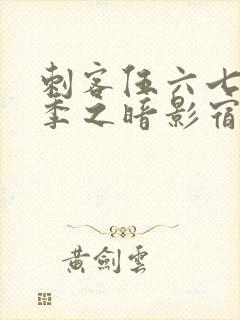 刺客伍六七
季之暗影宿
黄劍雲